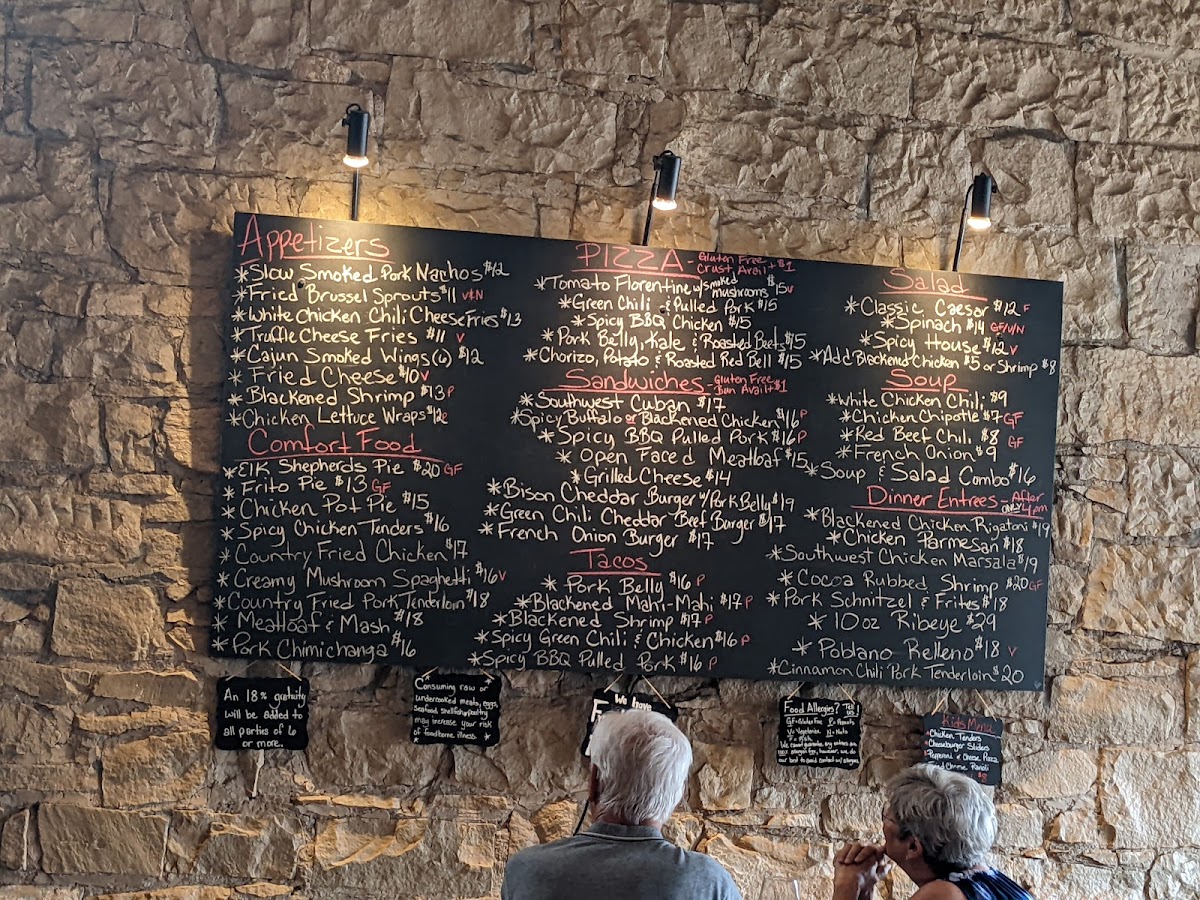 Appetizers
*Slow Smoked Pork Nachos $12
*Fried Brussel Sprouts $11 V&N
*White Chicken Chili Cheese Fries $13
*Truffle Cheese Fries $11 V
*Cajun Smoked Wings (6) $12
*Fried Cheese $10 V
*Blackened Shrimp $13 P
*Chicken Lettuce Wraps $12
Comfort Food
*Elk Shepherds Pie $20 GF
*Frito Pie $13 GF
*Chicken Pot Pie $15
*Spicy Chicken Tenders $16
*Country Fried Chicken $17
*Creamy Mushroom Spaghetti $16 V
*Country Fried Pork Tenderloin $18
*Meatloaf & Mash $18
*Pork Chimichanga $16
PIZZA - Gluten Free
Crust Avail + $1
*Tomato Florentine w/ smoked
mushrooms $15 V
*Green Chili & Pulled Pork $15
*Spicy BBQ Chicken $15
*Pork Belly, Kale & Roasted Beets $15
*Chorizo, Potato & Roasted Red Bell $15
Sandwiches - Gluten Free
Bun Avail + $1
*Southwest Cuban $17
*Spicy Buffalo or Blackened Chicken $16 P
*Spicy BBQ Pulled Pork $16 P
*Open Faced Meatloaf $15
*Grilled Cheese $14
*Bison Cheddar Burger w/ Pork Belly $19
*Green Chili Cheddar Beef Burger $17
*French Onion Burger $17
Tacos
*Pork Belly $16 P
*Blackened Mahi-Mahi $17 P
*Blackened Shrimp $17 P
*Spicy Green Chili & Chicken $16 P
*Spicy BBQ Pulled Pork $16 P
Salad
*Classic Caesar $12 F
*Spinach $14 GF/V/N
*Spicy House $12 V
*Add Blackened Chicken $5 or Shrimp $8
Soup
*White Chicken Chili $9
*Chicken Chipotle $7 GF
*Red Beef Chili $8 GF
*French Onion $9
*Soup & Salad Combo $16
Dinner Entrees - After
ONLY 4pm
*Blackened Chicken Rigatoni $19
*Chicken Parmesan $18
*Southwest Chicken Marsala $19
*Cocoa Rubbed Shrimp $20 GF
*Pork Schnitzel & Frites $18
*10oz Ribeye $29
*Poblano Relleno $18 V
*Cinnamon Chili Pork Tenderloin $20
An 18% gratuity
will be added to
all parties of 6
or more.
Consuming raw or
undercooked meats, eggs,
seafood, shellfish, poultry
may increase your risk
of foodborne illness.
We have
Food Allergies? Tell us
GF=Gluten Free P=Peanuts
V=Vegetarian N=Nuts
F=Fish
We cannot guarantee any entrees are
100% allergen free, however, we do
our best to avoid contact w/ allergens
Kids Menu
*Chicken Tenders
*Cheeseburger Sliders
*Pepperoni & Cheese Pizza
Fried Cheese Ravioli
$8